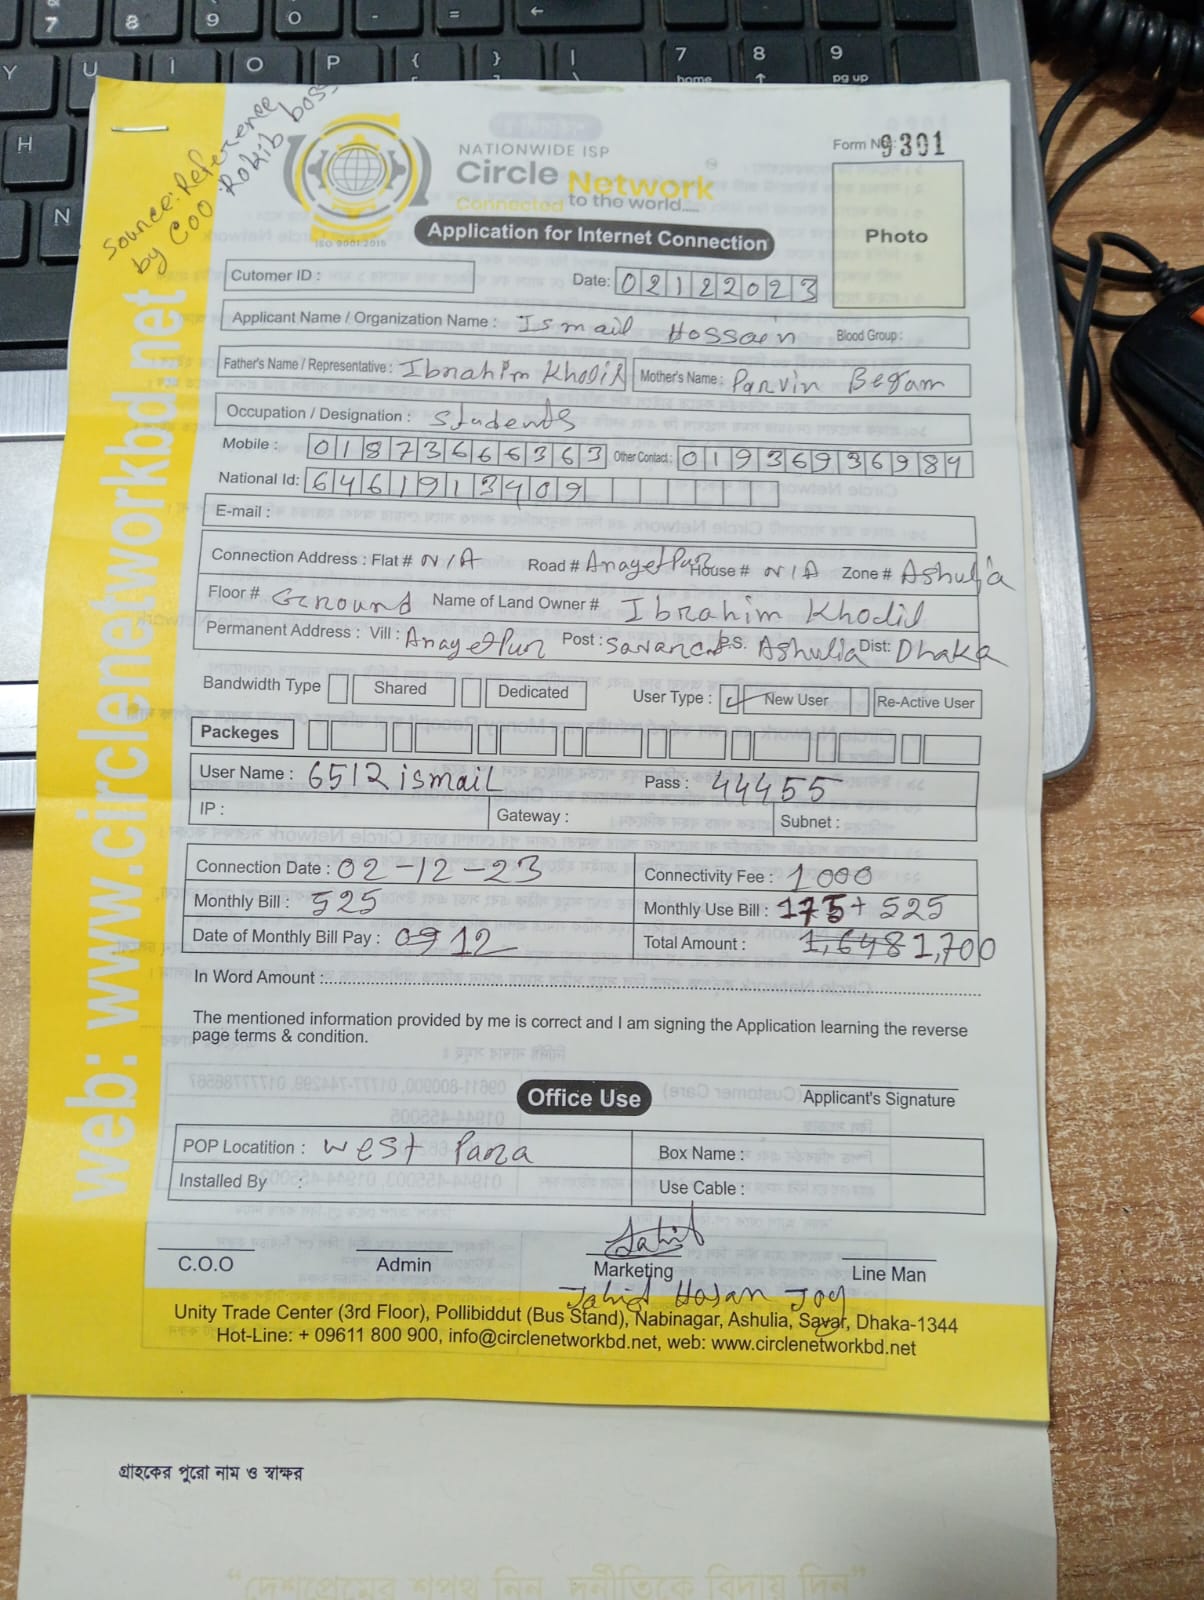 Source: Reference
by COO Rokib boss
NATIONWIDE ISP
Circle Network
Connected to the world.....
ISO 9001:2015
Form No 9301
Photo
Application for Internet Connection
Cutomer ID :
Date: 02122023
Applicant Name / Organization Name : Ismail Hossaen Blood Group :
Father's Name / Representative : Ibrahim Kholil Mother's Name : Parvin Begam
Occupation / Designation : students
Mobile : 01873666363 Other Contact : 01936936984
National Id: 6461913409
E-mail :
Connection Address : Flat # N/A Road # Anayetpur House # N/A Zone # Ashulia
Floor # Ground Name of Land Owner # Ibrahim Kholil
Permanent Address : Vill : Anayetpur Post : Savar P.S. Ashulia Dist: Dhaka
Bandwidth Type Shared Dedicated User Type : New User Re-Active User
Packeges
User Name : 6512ismail Pass : 44455
IP : Gateway : Subnet :
Connection Date : 02-12-23 Connectivity Fee : 1000
Monthly Bill : 525 Monthly Use Bill : 175+ 525
Date of Monthly Bill Pay : 09 12 Total Amount : 1,648 1,700
In Word Amount :
The mentioned information provided by me is correct and I am signing the Application learning the reverse
page terms & condition.
Applicant's Signature
Office Use
POP Locatition : West Para Box Name :
Installed By : Use Cable :
Jahid
C.O.O Admin Marketing Line Man
Jahid Hasan Joy
Unity Trade Center (3rd Floor), Pollibiddut (Bus Stand), Nabinagar, Ashulia, Savar, Dhaka-1344
Hot-Line: + 09611 800 900, info@circlenetworkbd.net, web: www.circlenetworkbd.net
web: www.circlenetworkbd.net
গ্রাহকের পুরো নাম ও স্বাক্ষর
“দেশপ্রেমের শপথ নিন, দুর্নীতিকে বিদায় দিন”